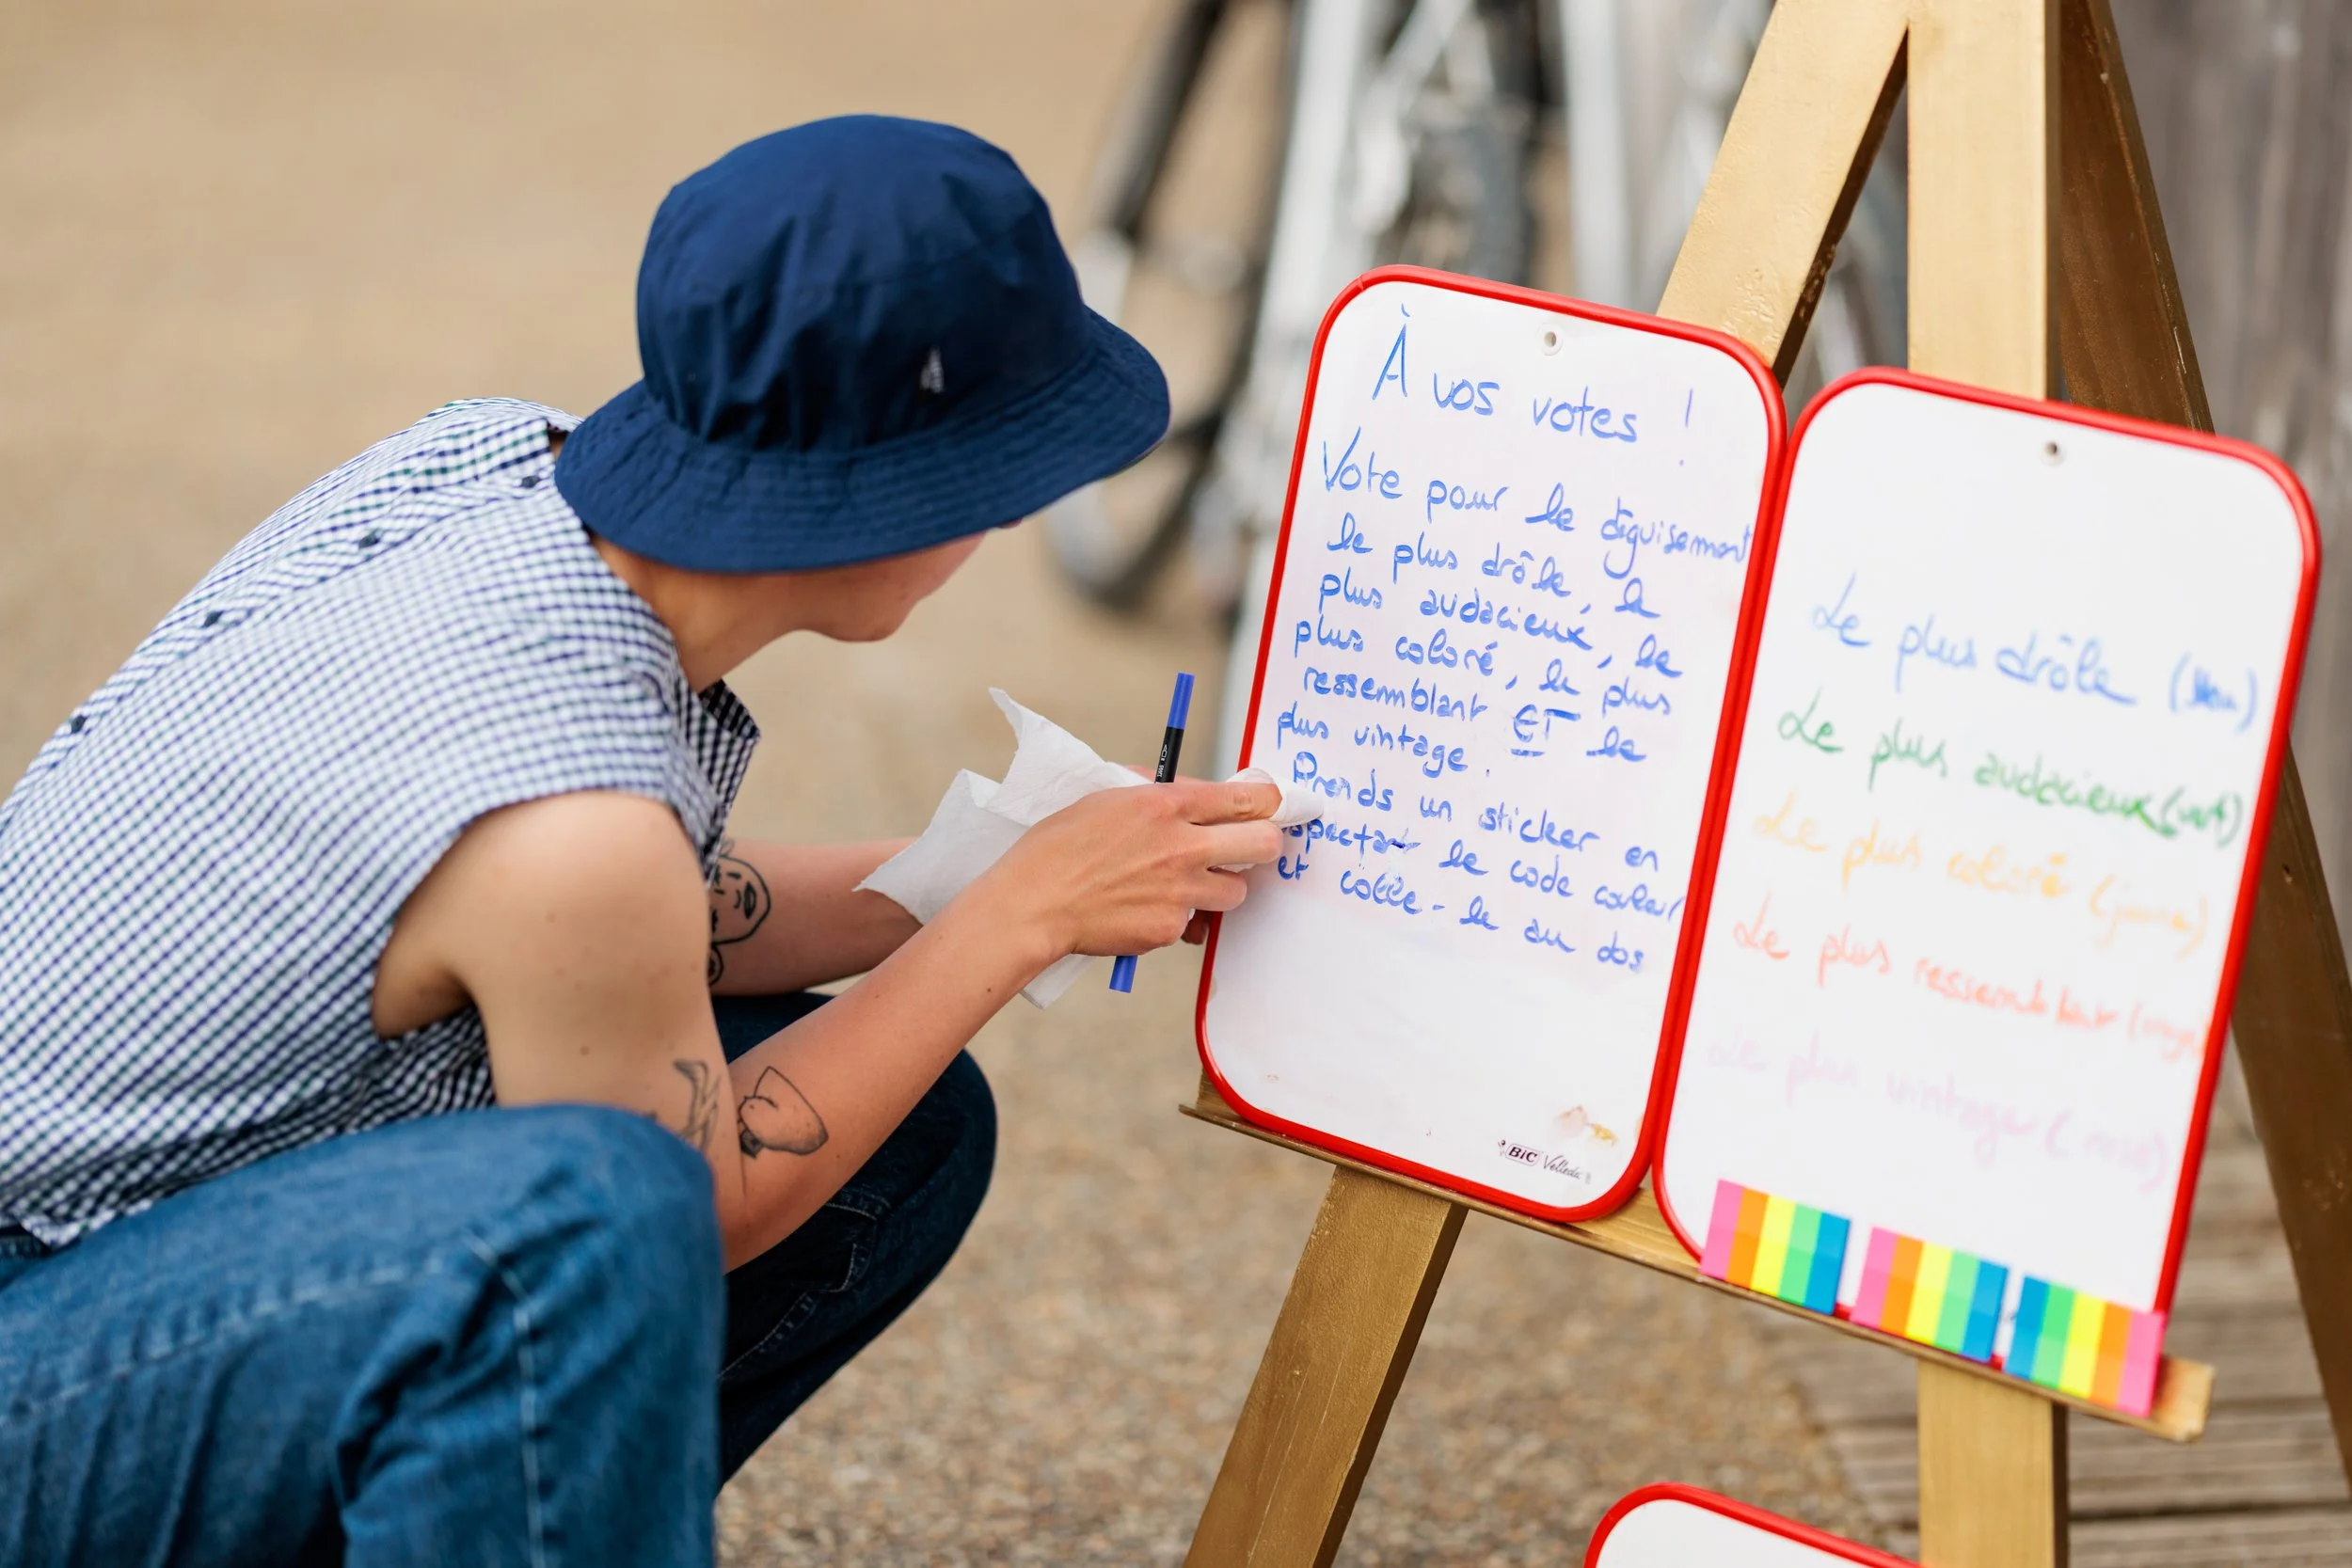 À vos votes !
Vote pour le déguisement
le plus drôle, le
plus audacieux, le
plus coloré, le plus
ressemblant ET le
plus vintage.
Prends un sticker en
spectant le code couleur
et colle-le au dos
BIC Velleda
Le plus drôle (bleu)
Le plus audacieux (vert)
Le plus coloré (jaune)
Le plus ressemblant (rouge
Le plus vintage (rose)